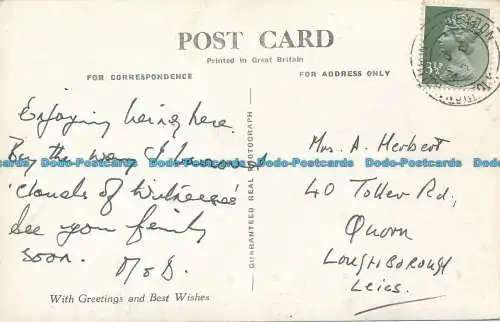 POST CARD
Printed in Great Britain
FOR CORRESPONDENCE
FOR ADDRESS ONLY
3½P
Enjoying being here.
By the way I
'Clouds of Witnesses'
See you
soon.
GUARANTEED REAL PHOTOGRAPH
Mrs. A. Herbert
40 Toller Rd,
Quorn
Loughborough
Leics.
With Greetings and Best Wishes
Dodo-Postcards Dodo-Postcards Dodo-Postcards Dodo-Postcards Dodo-Postcards Dodo-Postcards